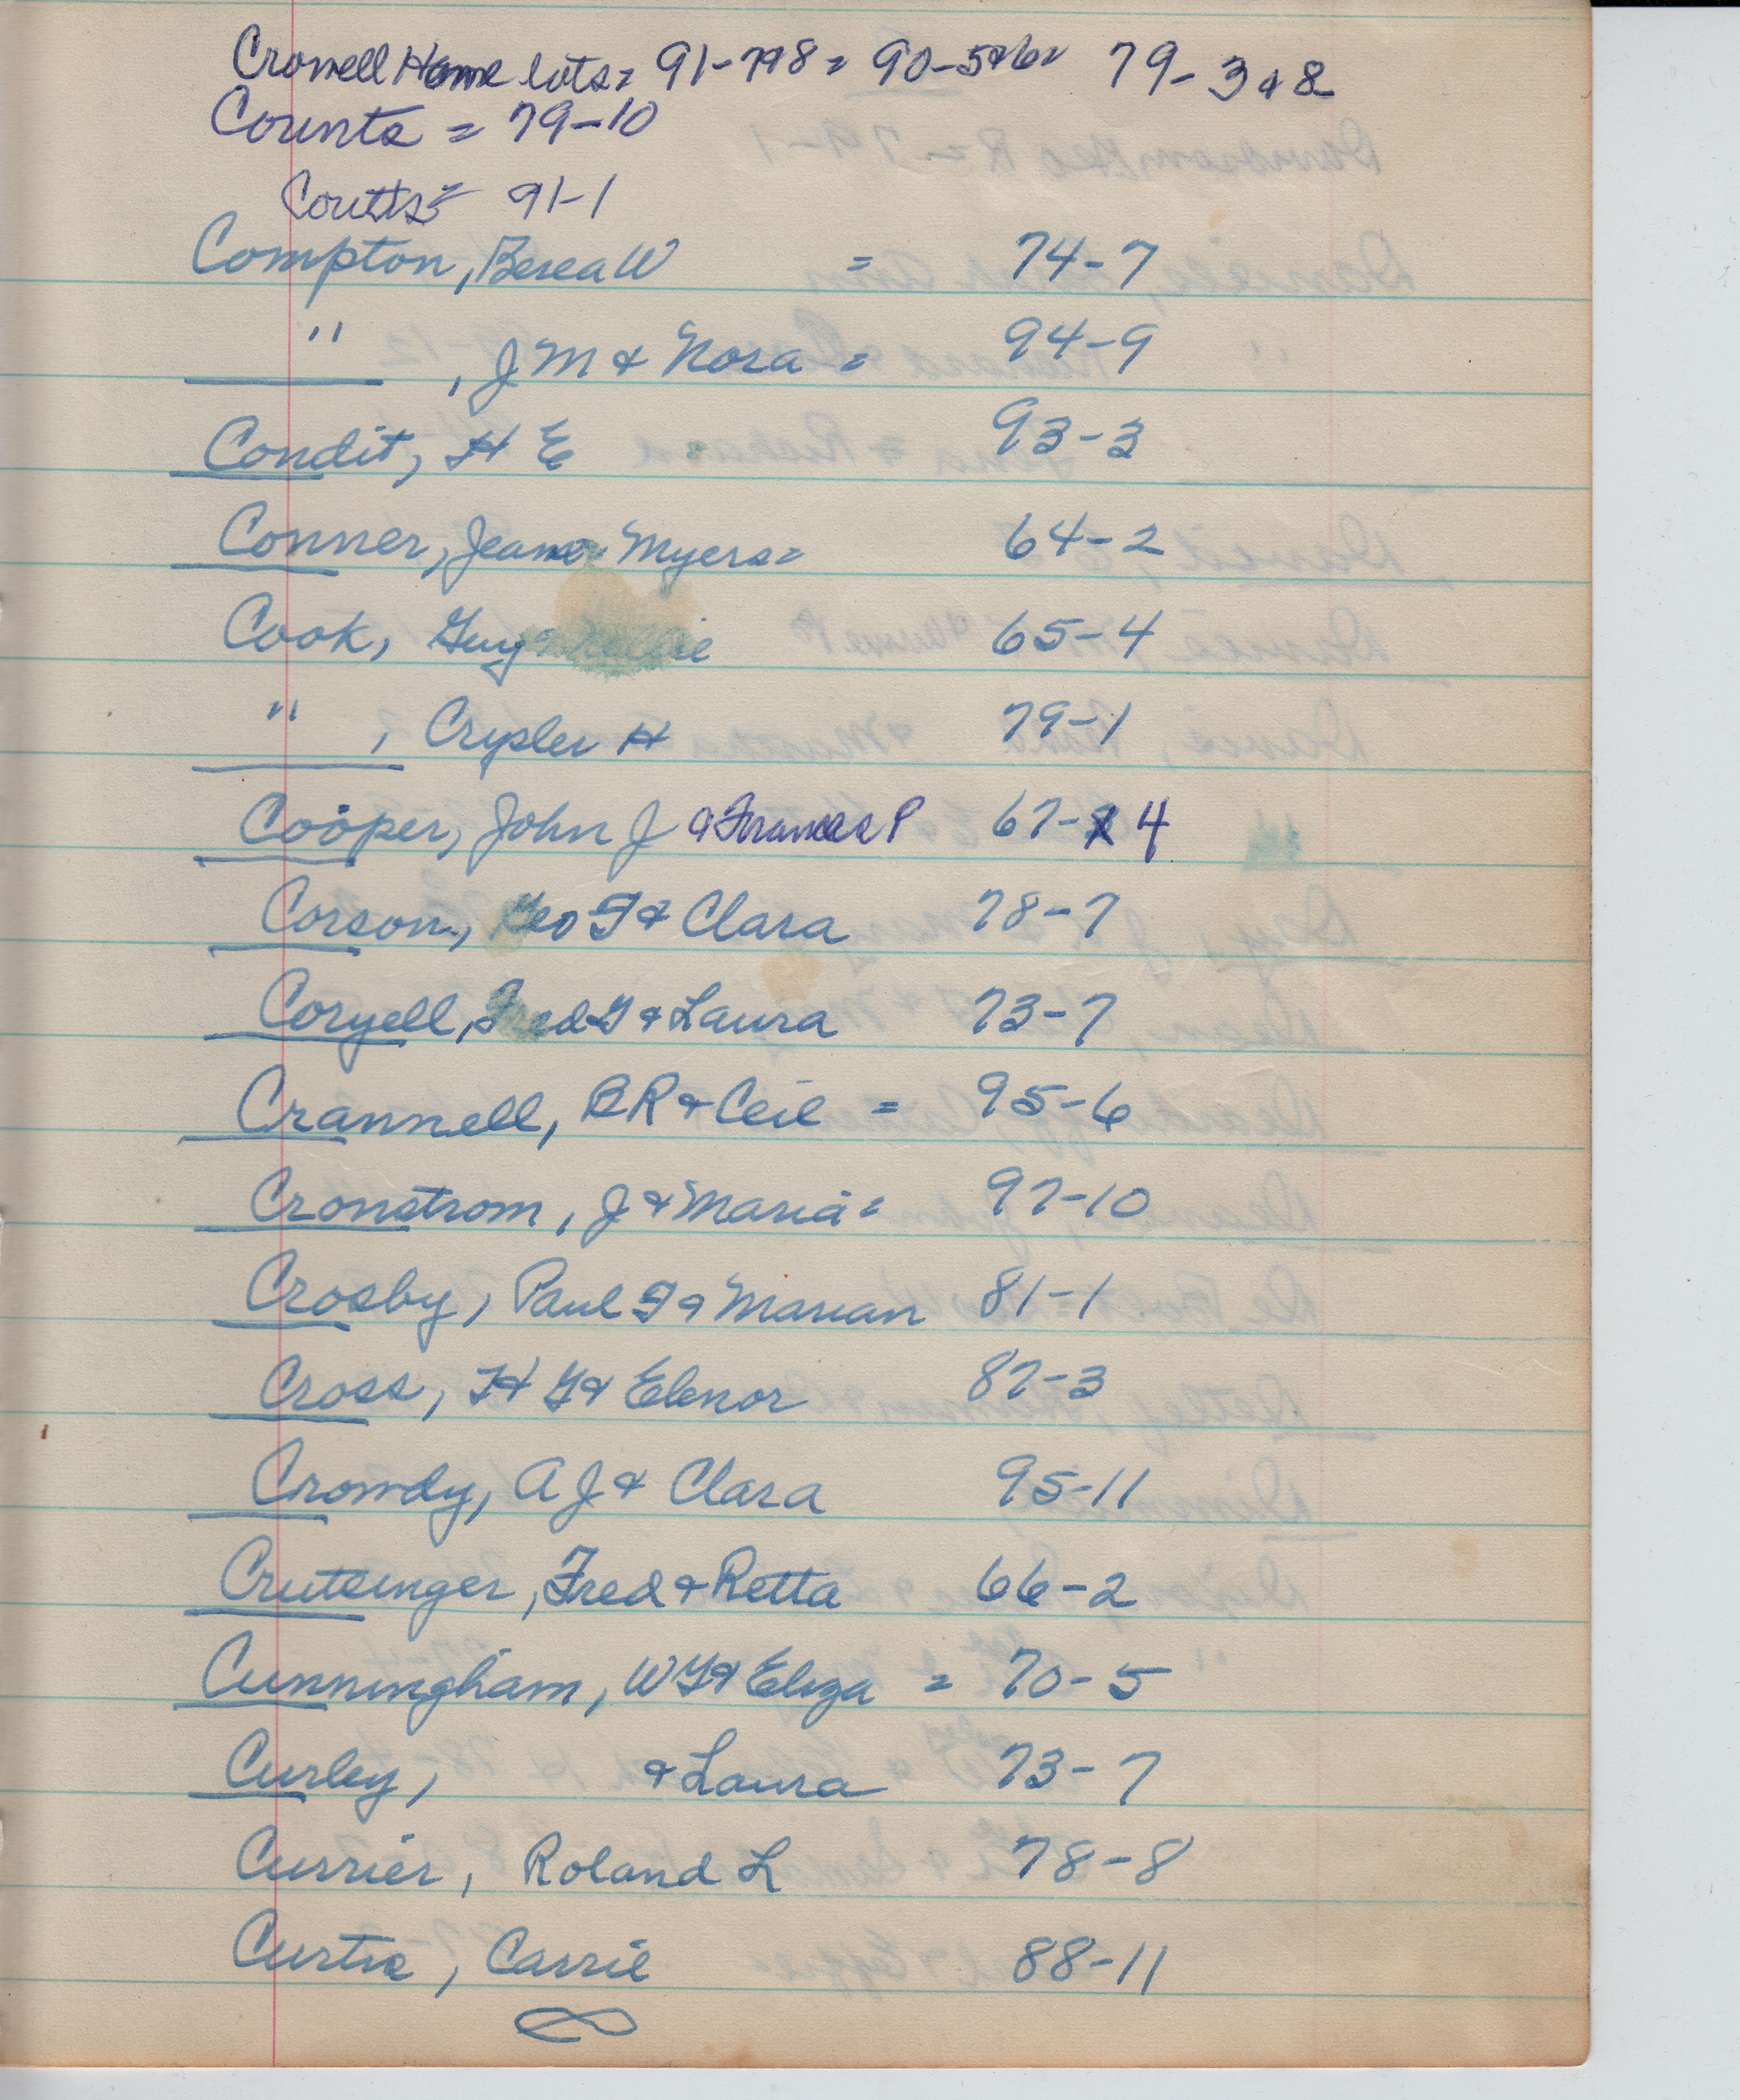 Crowell Home lots = 91-7&8 = 90-5&6 = 79-3 & 8
Counts = 79-10
Coutts = 91-1
Compton, Berea W = 74-7
" , J M & Nora = 94-9
Condit, H E 93-3
Conner, Jeanne Myers = 64-2
Cook, Guy & 65-4
" , Crysler H 79-1
Cooper, John J & Frances P 67-4
Corson, Geo F & Clara 78-7
Coryell, Fred G & Laura 73-7
Crannell, B R & Ceil = 95-6
Cronstrom, J & Maria = 97-10
Crosby, Paul F & Marian 81-1
Cross, H G & Elenor 87-3
Crowdy, A J & Clara 95-11
Crutsinger, Fred & Retta 66-2
Cunningham, W G & Eliza = 70-5
Curley, & Laura 73-7
Currier, Roland L 78-8
Curtis, Carrie 88-11